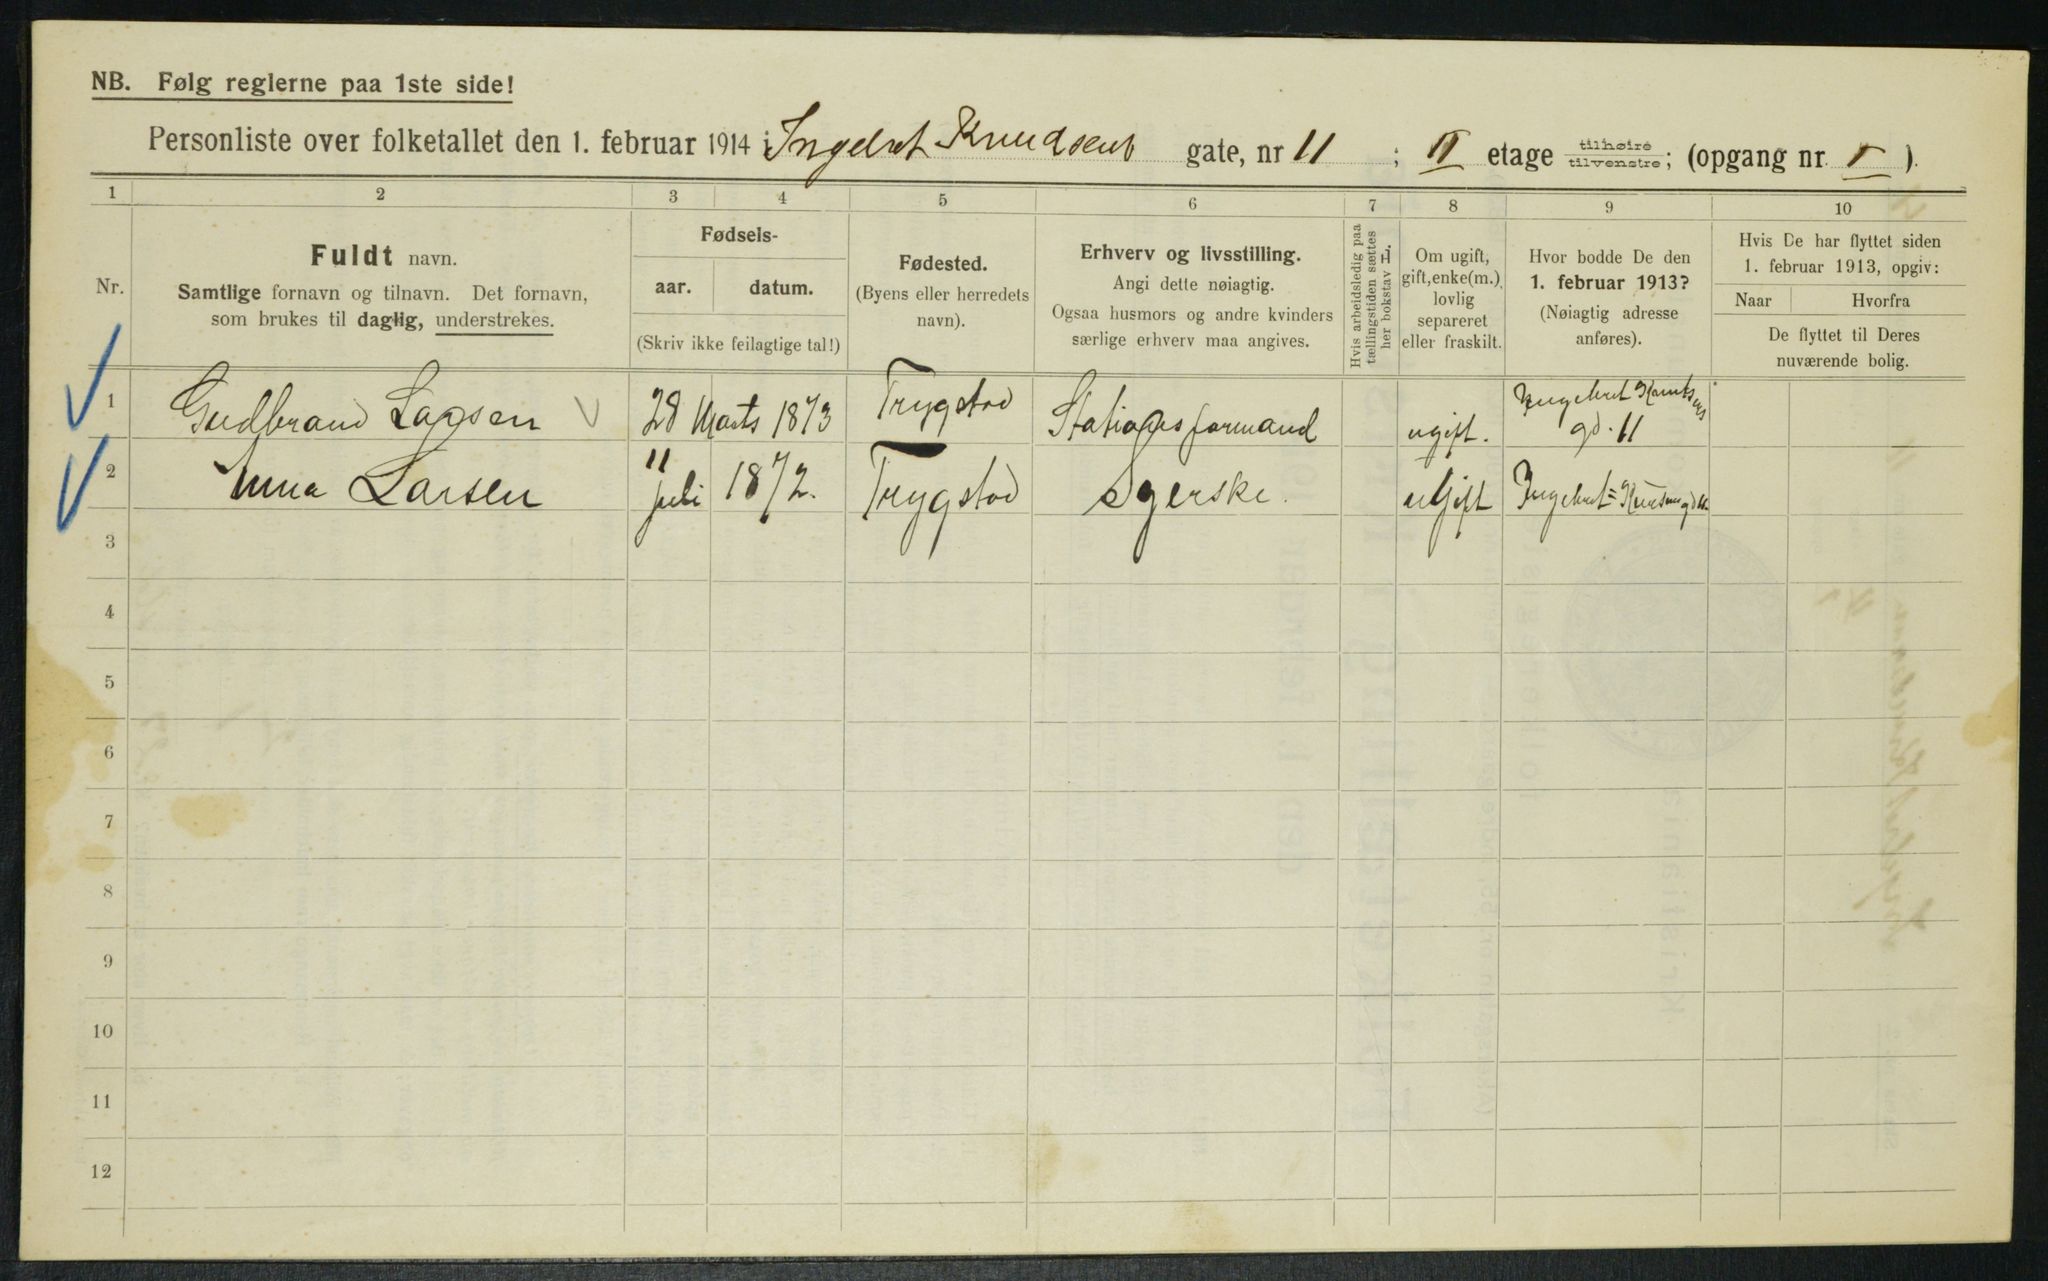 NB. Følg reglerne paa 1ste side!
Personliste over folketallet den 1. februar 1914 i Ingebret Knudsens gate, nr 11 ; II etage tilhøire tilvenstre; (opgang nr. I ).
1 2 3 4 5 6 7 8 9 10
Nr.
Fuldt navn.
Samtlige fornavn og tilnavn. Det fornavn,
som brukes til daglig, understrekes.
Fødsels-
aar. datum.
(Skriv ikke feilagtige tal!)
Fødested.
(Byens eller herredets
navn).
Erhverv og livsstilling.
Angi dette nøiagtig.
Ogsaa husmors og andre kvinders
særlige erhverv maa angives.
Hvis arbeidsledig paa
tællingstiden sættes
her bokstav H.
Om ugift,
gift, enke(m.),
lovlig
separeret
eller fraskilt.
Hvor bodde De den
1. februar 1913?
(Nøiagtig adresse
anføres).
Hvis De har flyttet siden
1. februar 1913, opgiv:
Naar Hvorfra
De flyttet til Deres
nuværende bolig.
1 Gudbrand Larsen 28 Marts 1873 Trygstad Stationsformand ugift. Ingebret Knutsens gd. 11
2 Anna Larsen 11 juli 1872. Trygstad Syerske. ugift Ingebret=
3
4
5
6
7
8
9
10
11
12